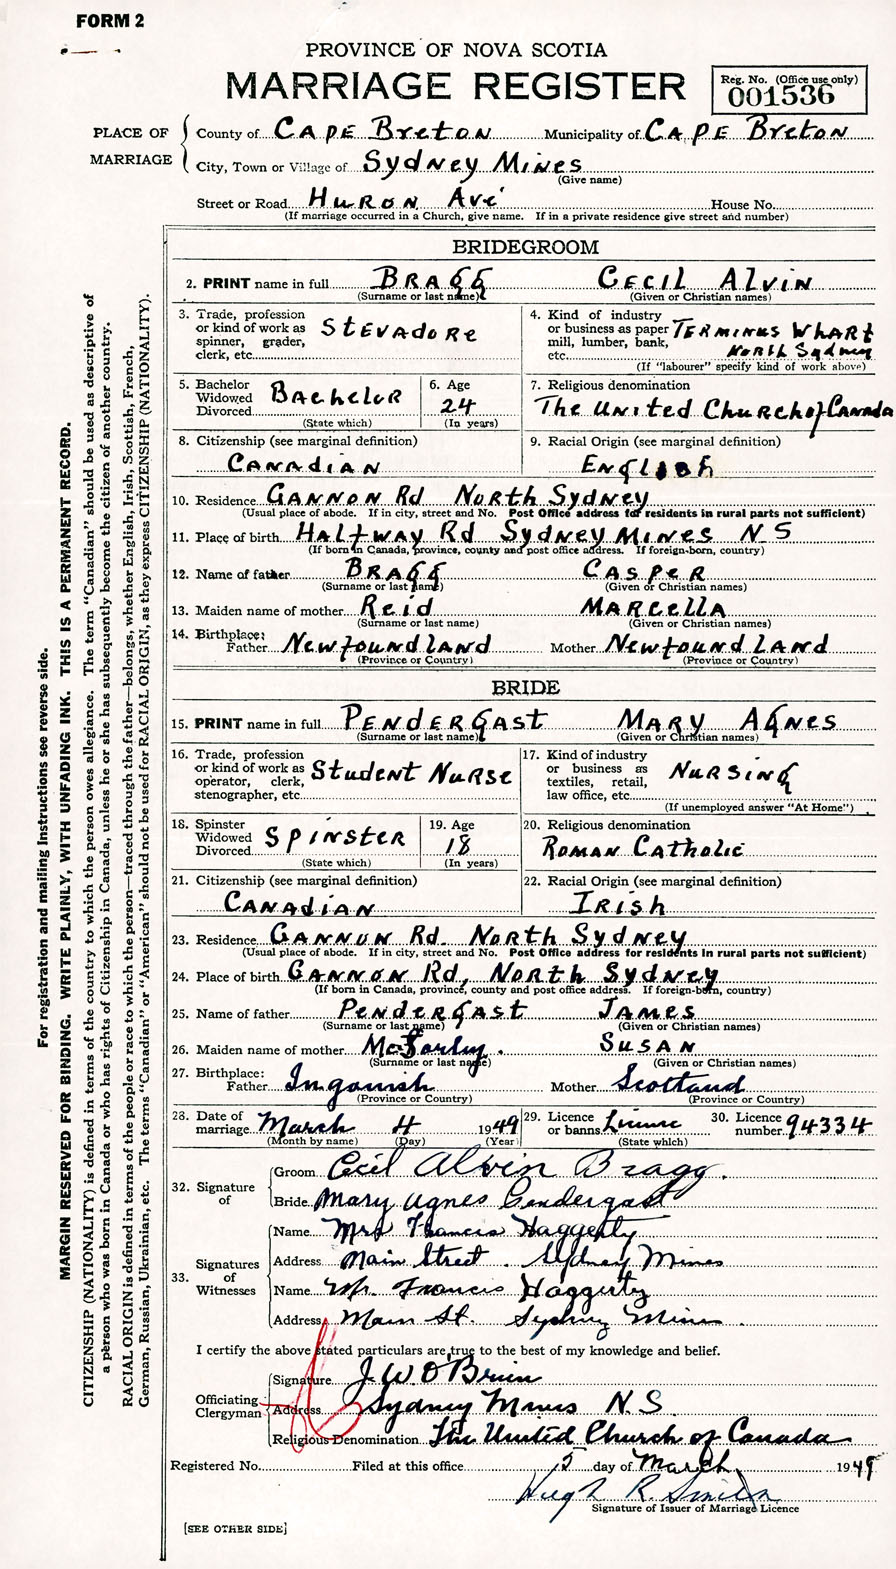 FORM 2
PROVINCE OF NOVA SCOTIA
MARRIAGE REGISTER
Reg. No. (Office use only)
001536
PLACE OF MARRIAGE
County of CAPE BRETON Municipality of CAPE BRETON
City, Town or Village of SYDNEY MINES
(Give name)
Street or Road HURON AVE House No.
(If marriage occurred in a Church, give name. If in a private residence give street and number)
BRIDEGROOM
2. PRINT name in full BRAGG CECIL ALVIN
(Surname or last name) (Given or Christian names)
3. Trade, profession or kind of work as spinner, grader, clerk, etc. STEVADORE
4. Kind of industry or business as paper mill, lumber, bank, etc. TERMINUS WHARF NORTH SYDNEY
(If "labourer" specify kind of work above)
5. Bachelor Widowed Divorced BACHELOR
(State which)
6. Age 24
(In years)
7. Religious denomination
The UNITED CHURCH of CANADA
8. Citizenship (see marginal definition)
CANADIAN
9. Racial Origin (see marginal definition)
ENGLISH
10. Residence GANNON Rd NORTH SYDNEY
(Usual place of abode. If in city, street and No. Post Office address for residents in rural parts not sufficient)
11. Place of birth HALFWAY Rd SYDNEY MINES N S
(If born in Canada, province, county and post office address. If foreign-born, country)
12. Name of father BRAGG CASPER
(Surname or last name) (Given or Christian names)
13. Maiden name of mother REID MARCELLA
(Surname or last name) (Given or Christian names)
14. Birthplace: Father NEWFOUNDLAND Mother NEWFOUNDLAND
(Province or Country) (Province or Country)
BRIDE
15. PRINT name in full PENDERGAST MARY AGNES
(Surname or last name) (Given or Christian names)
16. Trade, profession or kind of work as operator, clerk, stenographer, etc. STUDENT NURSE
17. Kind of industry or business as textiles, retail, law office, etc. NURSING
(If unemployed answer "At Home")
18. Spinster Widowed Divorced SPINSTER
(State which)
19. Age 18
(In years)
20. Religious denomination
ROMAN CATHOLIC
21. Citizenship (see marginal definition)
CANADIAN
22. Racial Origin (see marginal definition)
IRISH
23. Residence GANNUN Rd. NORTH SYDNEY
(Usual place of abode. If in city, street and No. Post Office address for residents in rural parts not sufficient)
24. Place of birth GANNON Rd, NORTH SYDNEY
(If born in Canada, province, county and post office address. If foreign-born, country)
25. Name of father PENDERGAST JAMES
(Surname or last name) (Given or Christian names)
26. Maiden name of mother SUSAN
(Surname or last name) (Given or Christian names)
27. Birthplace: Father Ingonish Mother Scotland
(Province or Country) (Province or Country)
28. Date of marriage March 4 1949
(Month by name) (Day) (Year)
29. Licence or banns License
(State which)
30. Licence number 94334
32. Signature of
Groom Cecil Alvin Bragg.
Bride Mary Agnes Pendergast
33. Signatures of Witnesses
Name Mrs Francis Haggerty
Address Main Street. Sydney Mines
Name Mr. Francis Haggerty
Address Main St. Sydney Mines.
I certify the above stated particulars are true to the best of my knowledge and belief.
Officiating Clergyman
Signature J. W. O'Brien
Address Sydney Mines N. S
Religious Denomination The United Church of Canada
Registered No. Filed at this office 5 day of March 1949
Hugh R. Smith
Signature of Issuer of Marriage Licence
[SEE OTHER SIDE]
For registration and mailing instructions see reverse side.
MARGIN RESERVED FOR BINDING. WRITE PLAINLY, WITH UNFADING INK. THIS IS A PERMANENT RECORD.
CITIZENSHIP (NATIONALITY) is defined in terms of the country to which the person owes allegiance. The term "Canadian" should be used as descriptive of
a person who was born in Canada or who has rights of Citizenship in Canada, unless he or she has subsequently become the citizen of another country.
RACIAL ORIGIN is defined in terms of the people or race to which the person—traced through the father—belongs, whether English, Irish, Scottish, French,
German, Russian, Ukrainian, etc. The terms "Canadian" or "American" should not be used for RACIAL ORIGIN, as they express CITIZENSHIP (NATIONALITY).